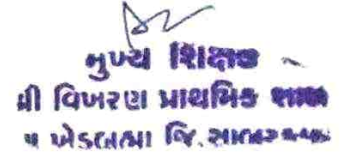 મુખ્ય શિક્ષક
શ્રી વિખરણ પ્રાથમિક શાળા
ખેડબ્રહ્મા જિ.